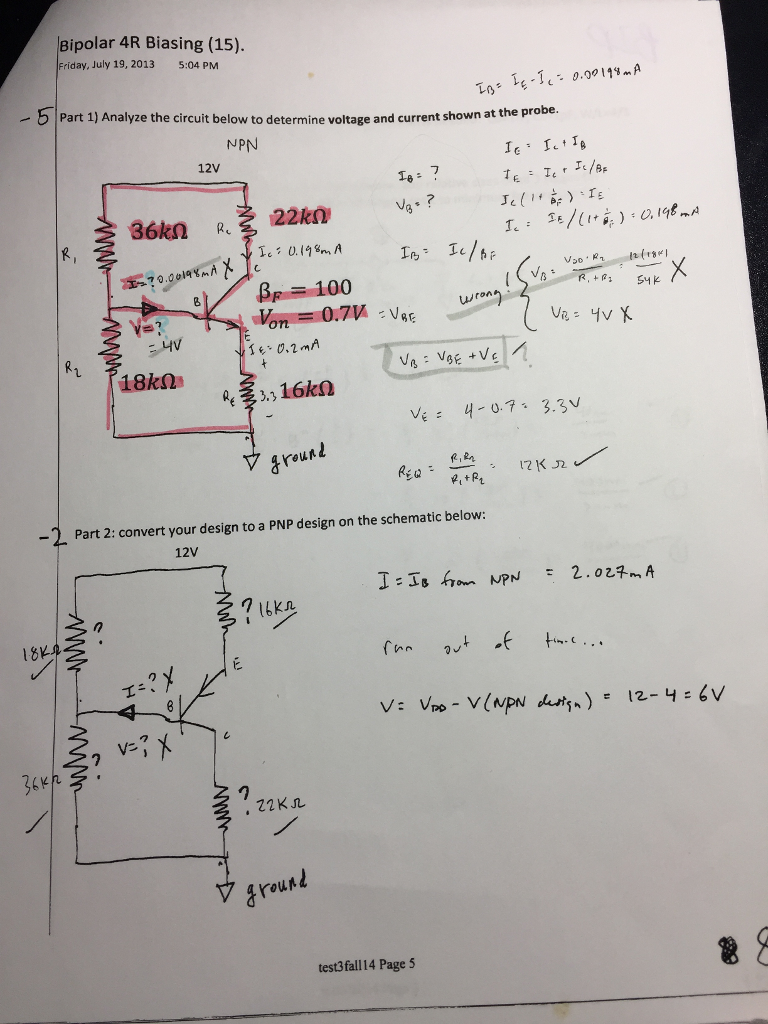 Bipolar 4R Biasing (15).
Friday, July 19, 2013 5:04 PM
I_B = I_E - I_C = 0.00198mA
-5 Part 1) Analyze the circuit below to determine voltage and current shown at the probe.
NPN
12V
R₁
36kΩ
R_C
22kΩ
I_C = 0.198mA
C
I=? 0.00198mA X
B
β_F = 100
V_on = 0.7V = V_BE
V=?
= 4V
E
I_E = 0.2mA
R₂
18kΩ
R_E
+
3.3
-
16kΩ
ground
I_B = ?
V_B = ?
I_B = I_C/β_F
I_E = I_C + I_B
I_E = I_C + I_C/β_F
I_C (1 + 1/β_F) = I_E
I_C = I_E/(1 + 1/β_F) = 0.198mA
wrong!
V_B = V_DD·R₂/R₁+R₂ = 12(18k)/54K X
V_B = 4V X
V_B = V_BE + V_E ?
V_E = 4 - 0.7 = 3.3V
R_EQ = R₁R₂/R₁+R₂ = 12KΩ ✓
-2 Part 2: convert your design to a PNP design on the schematic below:
12V
? 16KΩ
18KΩ ?
E
I=? X
B
V=? X
C
36KΩ ?
? 22KΩ
ground
I = I_B from NPN = 2.027mA
run out of time...
V = V_DD - V(NPN design) = 12-4 = 6V
test3fall14 Page 5
8